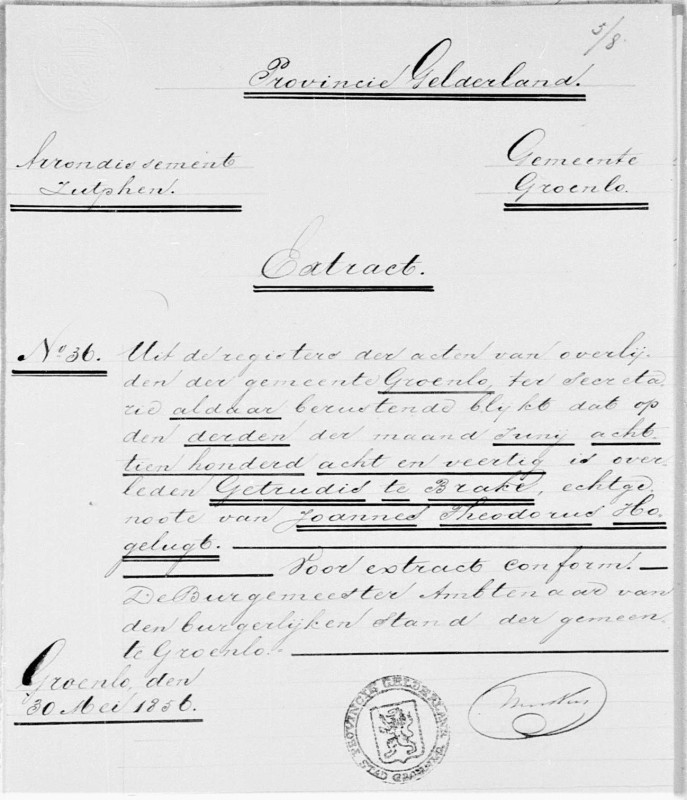 5/8
Provincie Gelderland.
Arrondissement
Zutphen.
Gemeente
Groenlo.
Extract.
No 36. Uit de registers der acten van overlij-
den der gemeente Groenlo, ter secreta-
rie aldaar berustende blijkt dat op
den derden der maand Junij acht-
tien honderd acht en veertig is over-
leden Getrudis te Brake, echtge-
noote van Joannes Theodorus Ho-
gelugt.
Voor extract conform.
De Burgemeester Ambtenaar van
den burgerlijken stand der gemeen-
te Groenlo.
Groenlo, den
30 Mei 1856.
PROVINCIE GELDERLAND